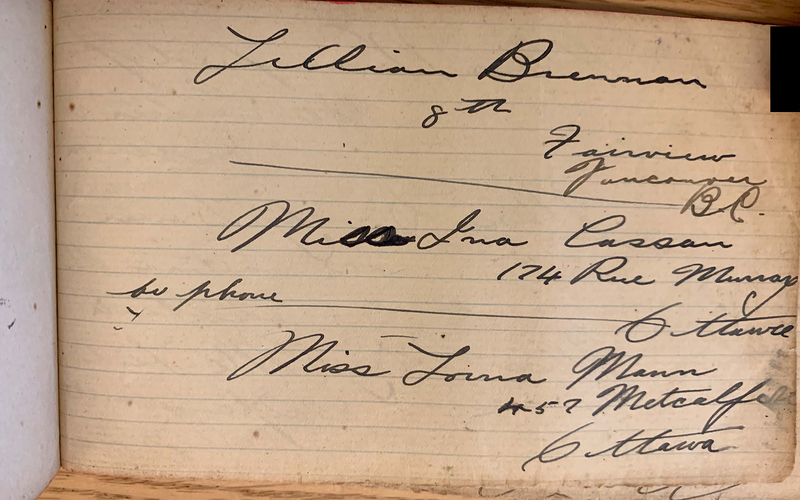 Lillian Brennan
8th
Fairview
Vancouver
B.C.
Miss Ina Cassan
174 Rue Murray
phone
Ottawa
Miss Lorna Mann
457 Metcalfe
Ottawa